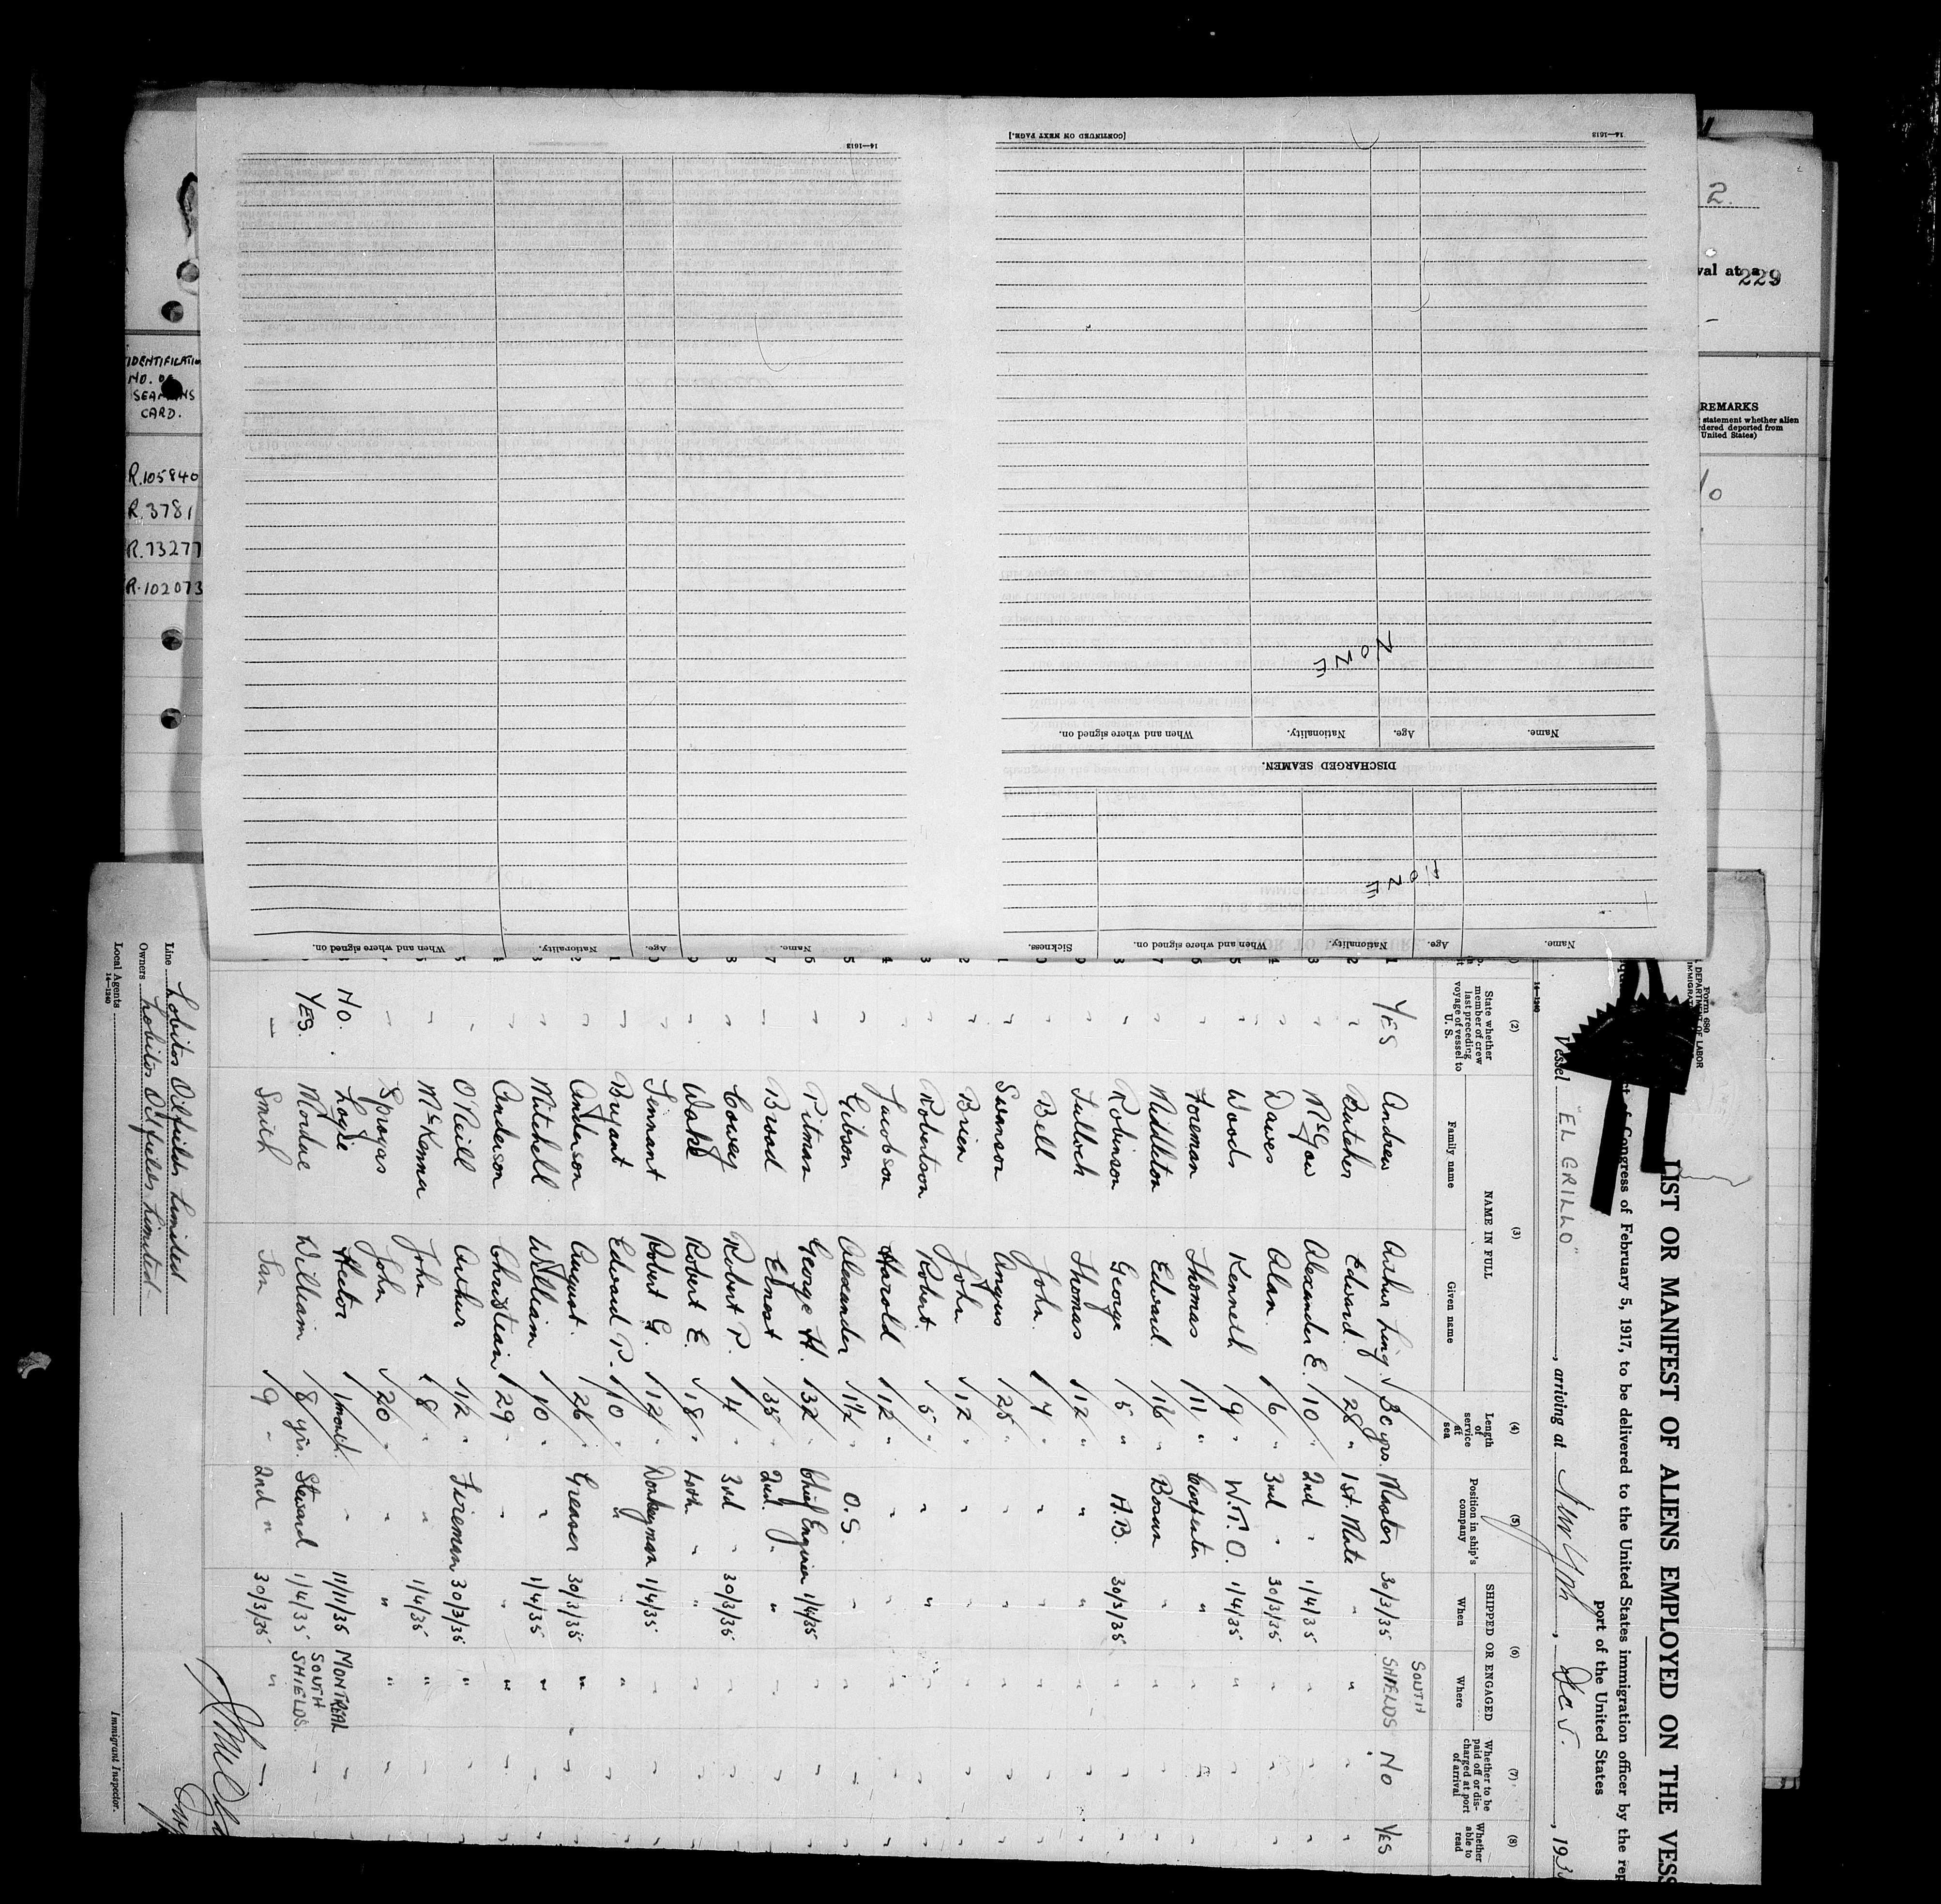 2.
val at a
229
REMARKS
statement whether alien
dered deported from
United States)
IDENTIFICATIO
NO. OF
SEAMANS
CARD.
R.105840
R.3781
R.73277
R.102073
14—1613
[CONTINUED ON NEXT PAGE.]
14—1613
NONE
Name. Age. Nationality. When and where signed on.
DISCHARGED SEAMEN.
NONE
Name. Age. Nationality. When and where signed on. Sickness.
Name. Age. Nationality. When and where signed on.
Form 680
DEPARTMENT OF LABOR
IMMIGRAT
LIST OR MANIFEST OF ALIENS EMPLOYED ON THE VESS
of Congress of February 5, 1917, to be delivered to the United States immigration officer by the rep
port of the United States
Vessel "EL GRILLO", arriving at New York, Dec 5., 193
14—1240
(2) (3) (4) (5) (6) (7) (8)
State whether member of crew last preceding voyage of vessel to U. S.
NAME IN FULL
Family name Given name
Length of service at sea
Position in ship's company
SHIPPED OR ENGAGED
When Where
Whether to be paid off or discharged at port of arrival
Whether able to read
1 YES Andrew Arthur Ling 30 yrs. Master 30/3/35 SOUTH SHIELDS NO YES
2 " Butcher Edward 28 " 1st. Mate " "
3 " McGow Alexander E. 10 " 2nd " 1/4/35 "
4 " Dawes Alan. 6 " 3rd " 30/3/35 "
5 " Woods Kenneth 9 " W.T.O. 1/4/35 "
6 " Foreman Thomas 11 " Carpenter " "
7 " Middleton Edward. 16 " Bosun " "
8 " Robinson George 5 " A.B. 30/3/35 "
9 " Tulloch Thomas 12 " " " "
0 " Bell John. 7 " " " "
1 " Swanson Angus 25 " " " "
2 " Brien John 12 " " " "
3 " Robertson Robert. 5 " " " "
4 " Jacobson Harold 12 " " " "
5 " Gibson Alexander 1½ " O.S. " "
6 " Pitman George H. 32 " Chief Engineer 1/4/35 "
7 " Broad Ernest 35 " 2nd. " " "
8 " Cowey Robert P. 4 " 3rd " 30/3/35 "
9 " Wake Robert E. 18 " 4th " " "
0 " Tennant Robert G. 12 " Donkeyman 1/4/35 "
1 " Bryant Edward P. 10 " " " "
2 " Anderson August. 26 " Greaser 30/3/35 "
3 " Mitchell William 10 " " 1/4/35 "
4 " Anderson Christian 29 " " " "
5 " O'Neill Arthur 12 " Fireman 30/3/35 "
6 " McKenna John 8 " " 1/4/35 "
7 " Spragas John 20 " " " "
8 NO. Logie Hector 1 month. " 11/11/35 MONTREAL
9 YES. Mordue William 8 yrs. Steward 1/4/35 SOUTH SHIELDS.
Smith Ian 9 " 2nd " 30/3/35 "
Line Lobitos Oilfields Limited
Owners Lobitos Oilfields Limited.
Local Agents
14—1240
Immigrant Inspector.